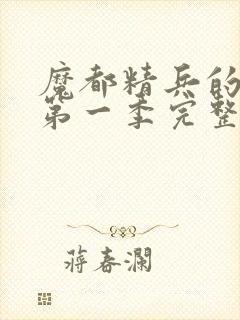 魔都精兵的
第一季完整
蔣春瀾